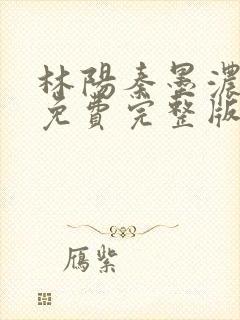 林陽秦墨濃
免費完整版
雁紫